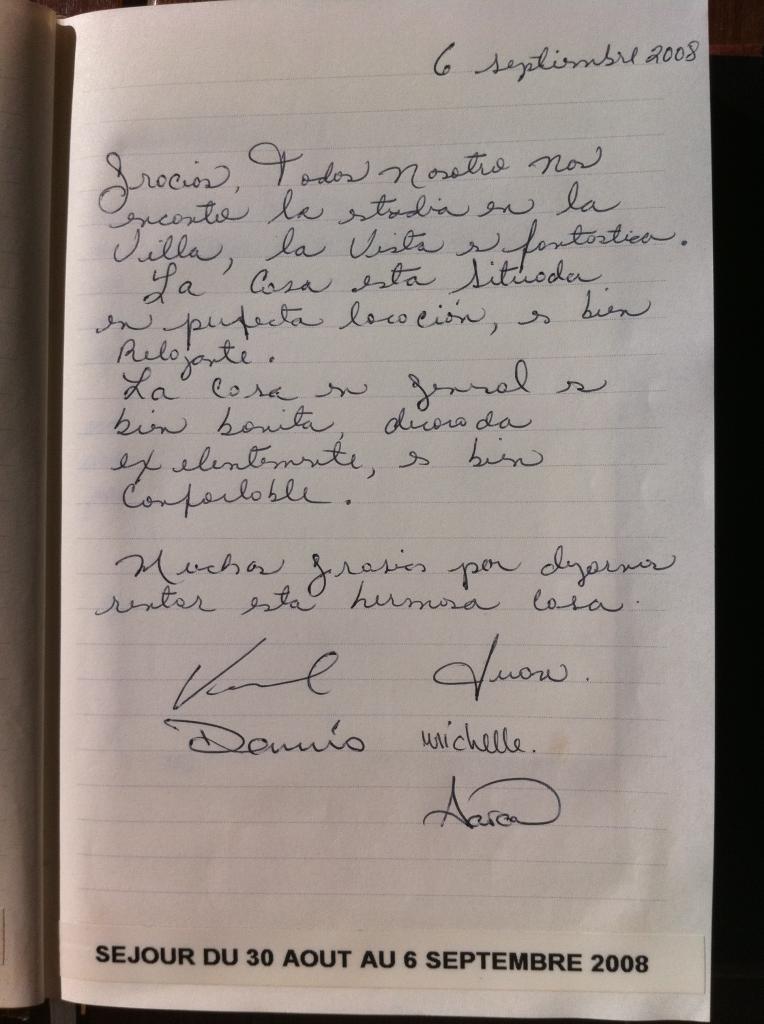 6 septiembre 2008
Gracias, Todos Nosotro nos
encanto la estadia en la
Villa, la Vista es fantastica.
La Casa esta Situada
en perfecta locación, es bien
Relajante.
La Casa en general es
bien bonita, decorada
exelentemente, es bien
Confortable.
Muchas gracias por dejarnos
rentar esta hermosa Casa.
Juan.
michelle.
SEJOUR DU 30 AOUT AU 6 SEPTEMBRE 2008